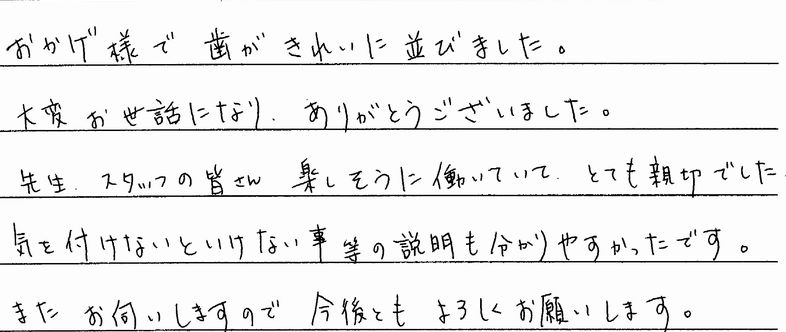 おかげ様で 歯がきれいに並びました。
大変お世話になり、ありがとうございました。
先生、スタッフの皆さん 楽しそうに働いていて、とても親切でした
気を付けないといけない事等の説明も分かりやすかったです。
また お伺いしますので 今後とも よろしくお願いします。